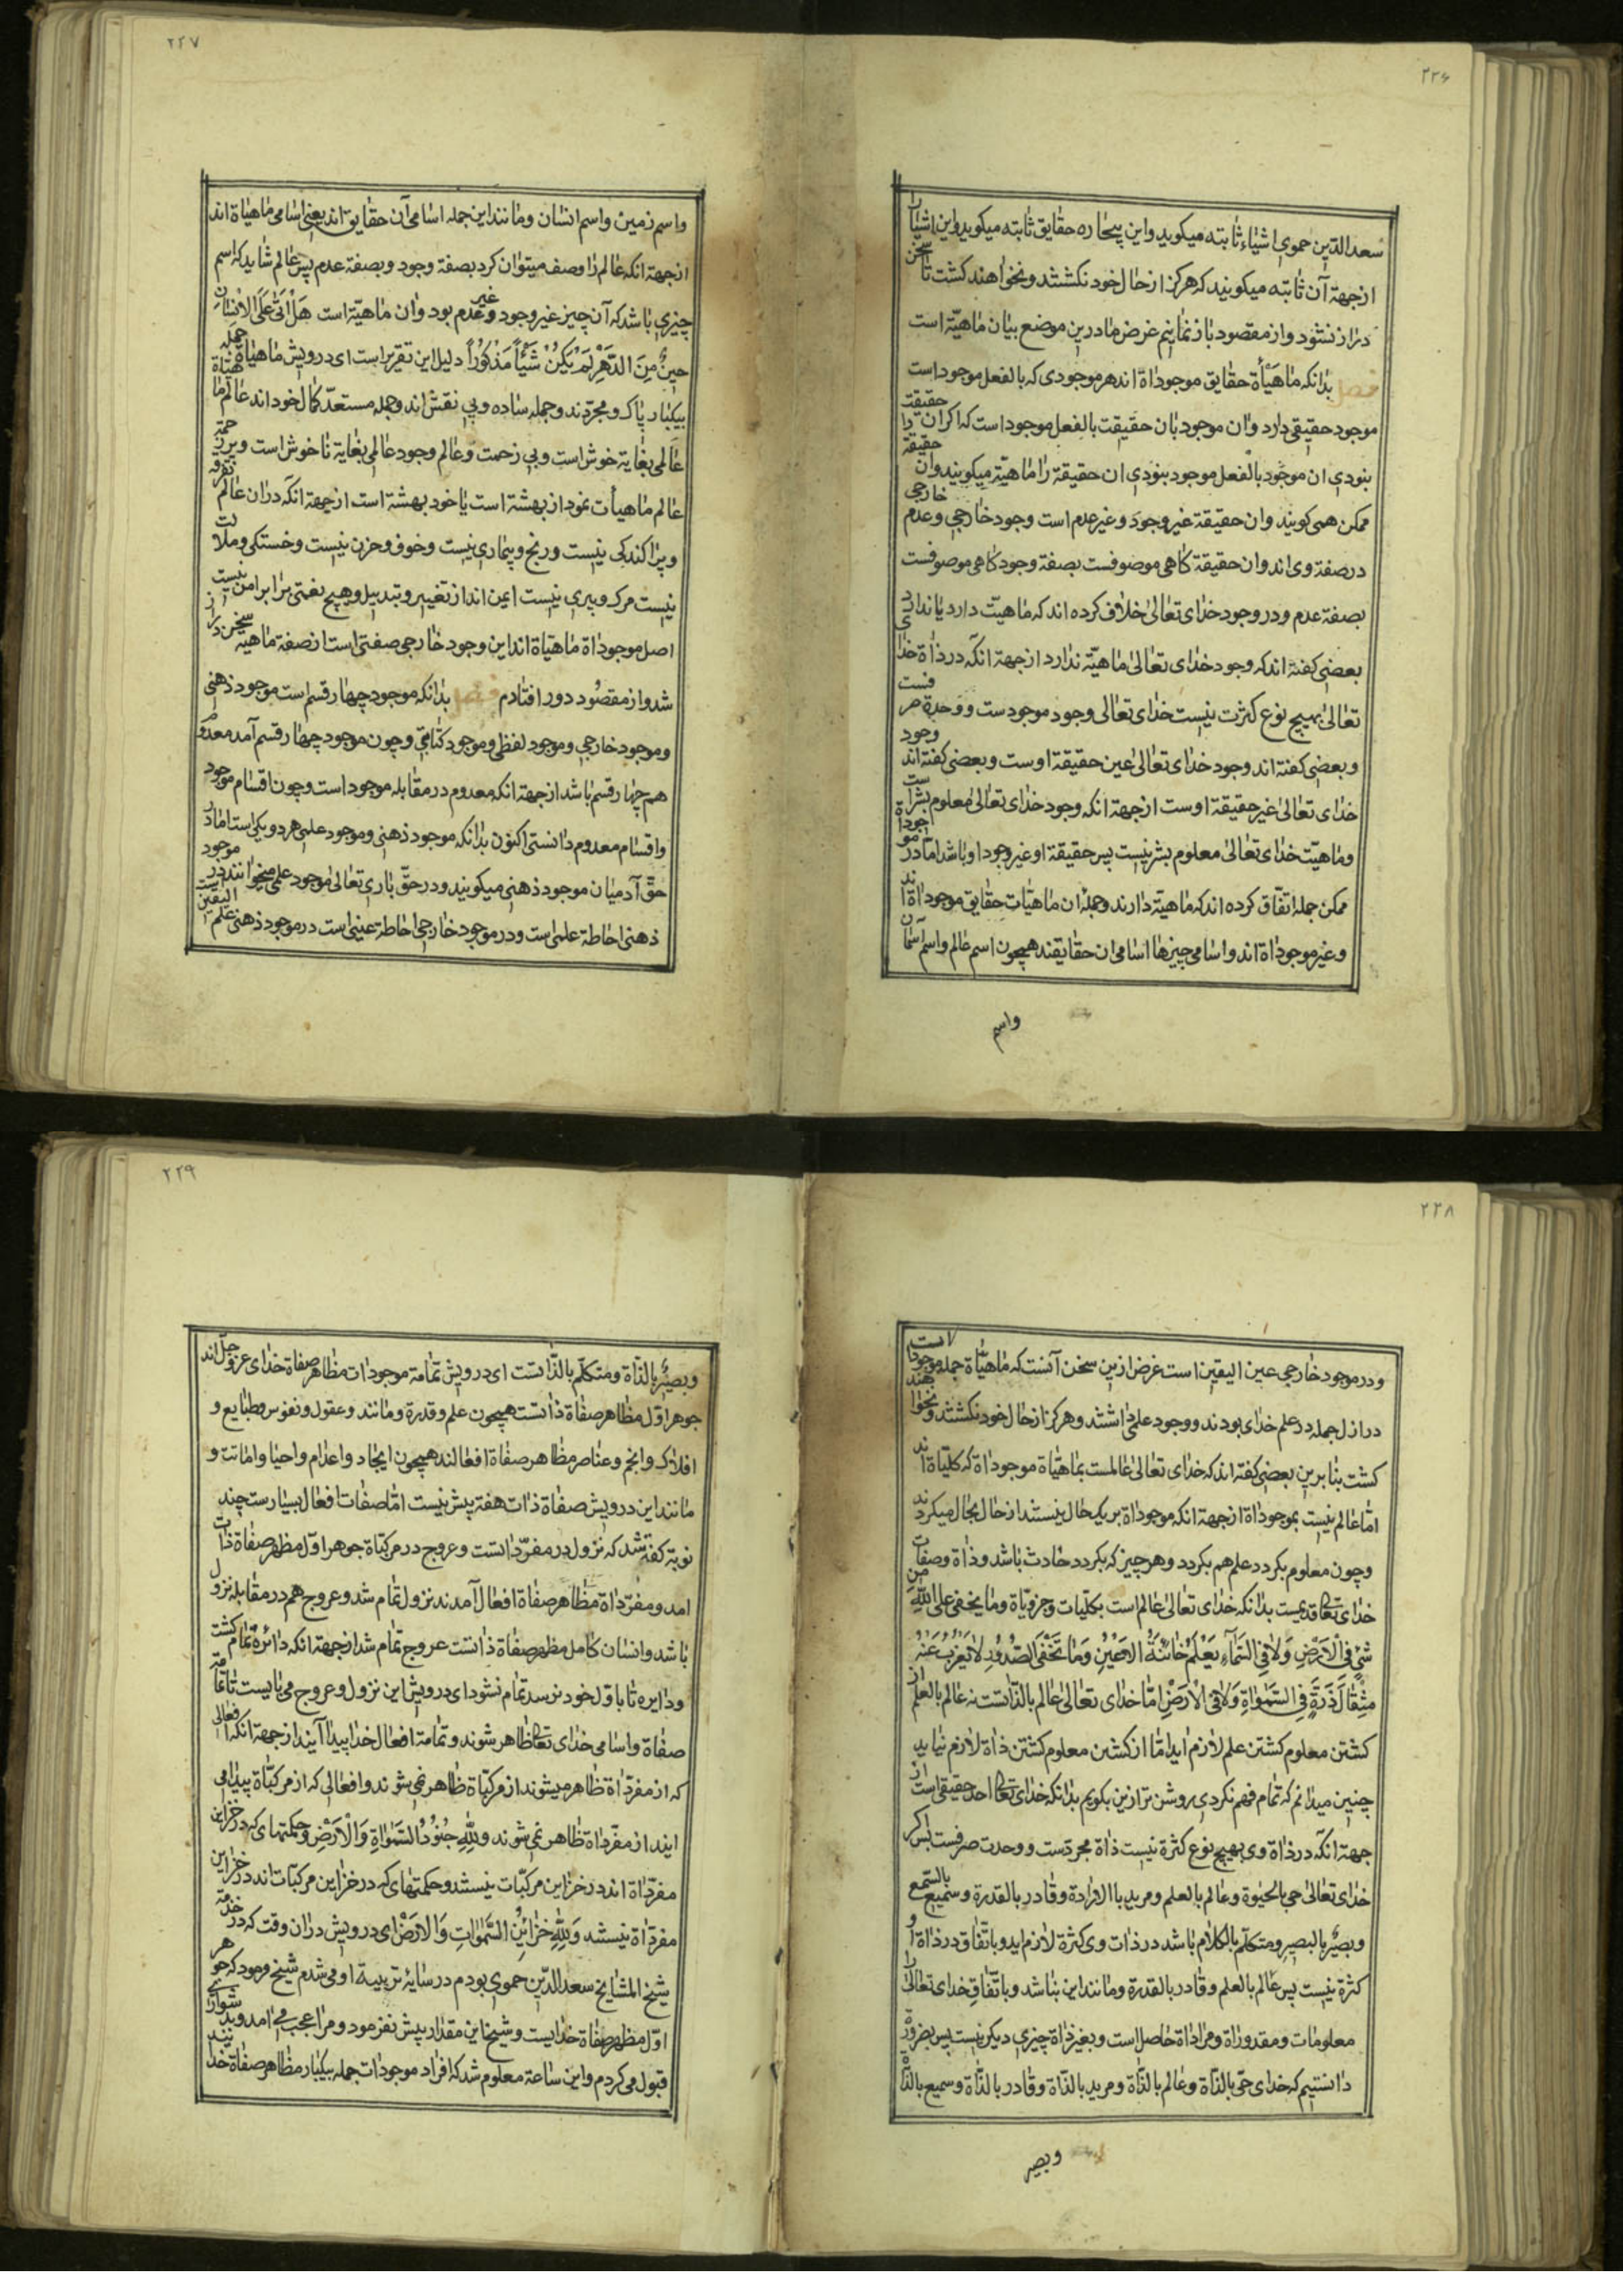 ۲۲۶
سعدالدّین حموی اشیاء ثابته میکوید واین بیچاره حقایق ثابته میکوید واین اشیا را
ازجهة آن ثابته میکویند که هرکز از حال خود نکشتند ونخواهند کشت تا سخن
دراز نشود واز مقصود باز نمانیم غرض ما درین موضع بیان ماهیّة است
فصل بدانکه ماهیأة حقایق موجوداة اند هر موجودی که بالفعل موجود است
موجود حقیقتی دارد وان موجود بان حقیقت بالفعل موجود است که اکر ان حقیقت را
بنودی ان موجود بالفعل موجود بنودی ان حقیقة را ماهیّة میکویند وان حقیقة
ممکن همی کویند وان حقیقة غیر وجود وغیر عدم است وجود خارجی وعدم خارجی
در صفة وی اند وان حقیقة کاهی موصوفست بصفة وجود کاهی موصوفست
بصفة عدم ودر وجود خدای تعالی خلاف کرده اند که ماهیّت دارد یا ندارد
بعضی کفته اند که وجود خدای تعالی ماهیّة ندارد ازجهة انکه در ذاة خدای
تعالی بهیچ نوع کثرت نیست خدای تعالی وجود موجودست ووحدة صرفست
وبعضی کفته اند وجود خدای تعالی عین حقیقة اوست وبعضی کفته اند وجود
خدای تعالی غیر حقیقة اوست ازجهة انکه وجود خدای تعالی معلوم بشراست
وماهیّت خدای تعالی معلوم بشر نیست پس حقیقة او غیر وجود او باشد امّا در موجوداة
ممکن جمله اتفاق کرده اند که ماهیّة دارند وجمله ان ماهیّات حقایق موجوداة اند
وغیر موجوداة اند واسامی چیزها اسامی ان حقایقند همچون اسم عالم واسم آسمان
واسم
۲۲۷
واسم زمین واسم انسان ومانند این جمله اسامی آن حقایق اند یعنی اسامی ماهیاة اند
ازجهة انکه عالم را وصف میتوان کرد بصفة وجود وبصفة عدم پس عالم شاید که اسم
چیزی باشد که آن چیز غیر وجود وغیر عدم بود وان ماهیّة است هَلْ اَتٰی عَلَی الاِنْسَانِ
حینٌ مِنَ الدَّهْرِ لَمْ یَکُنْ شَیْئاً مَذْکُوراً دلیل این تقریر است ای درویش ماهیاة جمله
بیکبار پاک ومجرّدند وجمله ساده وبی نقش اند وجمله مستعدّ کمال خود اند عالم ماهیاة
عالمی بغایة خوش است وبی زحمت وعالم وجود عالمی بغایة ناخوش است وپر زحمة
عالم ماهیأت نمودار بهشة است یا خود بهشة است ازجهة انکه در ان عالم تفرقه
وپراکندکی نیست ورنج وبیماری نیست وخوف وحزن نیست وخستکی وملالت
نیست مرک وپیری نیست ایمن اند از تغییر وتبدیل وهیچ نعمتی برابر امن نیست
اصل موجوداة ماهیاة اند این وجود خارجی صفتی است از صفة ماهیة سخن دراز
شد واز مقصود دور افتادم فصل بدانکه موجود چهار قسم است موجود ذهنی
وموجود خارجی وموجود لفظی وموجود کتابتی وچون موجود چهار قسم آمد معدوم
هم چهار قسم باشد ازجهة انکه معدوم در مقابله موجود است وچون اقسام موجود
واقسام معدوم دانستی اکنون بدانکه موجود ذهنی وموجود علمی هر دو یکی است اما در
حقّ آدمیان موجود ذهنی میکویند ودر حقّ باری تعالی موجود علمی میخوانند در موجود
ذهنی احاطة علمی است ودر موجود خارجی احاطة عینی است در موجود ذهنی علم الیقین است
۲۲۸
ودر موجود خارجی عین الیقین است غرض ازین سخن آنست که ماهیّاة جمله موجودات
در ازل جمله در علم خدای بودند ووجود علمی داشتند وهرکز از حال خود نکشتند ونخواهند
کشت بنابرین بعضی کفته اند که خدای تعالی عالمست بماهیّاة موجوداة که کلیاة اند
امّا عالم نیست بموجوداة ازجهة انکه موجوداة بر یک حال نیستند از حال بحال میکردند
وچون معلوم بکردد علم هم بکردد وهر چیز که بکردد حادث باشد وذاة وصفات
خدای تعالی قدیمست بدانکه خدای تعالی عالم است بکلّیات وجزویّاة وما یخفی علی اللّٰهِ من
شیءٍ فی الْاَرْضِ وَلَا فِی السَّمَاءِ یَعْلَمُ خَائِنَةَ الاعْیُنِ وَمَا تُخْفِی الصّدُوُر لَا یَعْزُبُ عَنْهُ
مِثْقَالُ ذَرَّةٍ فِی السَّمٰوَاةِ وَلَا فِی الْاَرْضِ امّا خدای تعالی عالم بالذّاتست نه عالم بالعلم از
کشتن معلوم کشتن علم لازم اید امّا از کشتن معلوم کشتن ذاة لازم نیاید
چنین میدانم که تمام فهم نکردی روشن تر ازین بکویم بدانکه خدای تعالی احد حقیقی است از
جهة انکه در ذاة وی بهیچ نوع کثرة نیست ذاة مجردست ووحدت صرفست پس اکر
خدای تعالی حی بالحیوة وعالم بالعلم ومرید باالارادة وقادر بالقدرة وسمیع بالسّمع
وبصیرٌ بالبصیر ومتکلّم بالکلام باشد در ذات وی کثرة لازم اید وباتفاق در ذاة او
کثرة نیست پس عالم بالعلم وقادر بالقدرة ومانند این نباشد وباتّفاق خدای تعالی را
معلومات ومقدوراة ومراداة حاصل است وبغیر ذاة چیزی دیکر نیست پس بضرورة
دانستیم که خدای حیّ بالذّاة وعالم بالذّاة ومرید بالذّاة وقادر بالذّاة وسمیع بالذّاة
وبصیر
۲۲۹
وبصیرٌ بالذّاة ومتکلّم بالذّاتست ای درویش تمامة موجودات مظاهر صفاة خدای عزوجلّ اند
جوهر اوّل مظاهر صفاة ذاتست همچون علم وقدرة ومانند وعقول ونفوس وطبایع و
افلاک وانجم وعناصر مظاهر صفاة افعالند همچون ایجاد واعدام واحیا واماتت و
مانند این درویش صفاة ذات هفته بیش نیست امّا صفات افعال بسیارست چند
نوبة کفته شد که نزول در مفرداتست وعروج در مرکبّاة جوهر اوّل مظهر صفاة ذات
امد ومفرّداة مظاهر صفاة افعال آمدند نزول تمام شد وعروج هم در مقابله نزول
باشد وانسان کامل مظهر صفاة ذاتست عروج تمام شد ازجهة انکه دائرة تمام کشت
ودایره تا باوّل خود نرسد تمام نشود ای درویش این نزول وعروج می بایست تا تمامة
صفاة واسامی خدای تعالی ظاهر شوند وتمامة افعال خدا پیدا آیند ازجهة انکه افعالی
که از مفرّداة ظاهر میشوند از مرکبّاة ظاهر نمی شوند وافعالی که از مرکبّاة پیدا می
ایند از مفرّداة ظاهر نمی شوند وللّٰهِ جُنُوُدُ السَّمٰوَاةِ وَالْاَرْضِ وحکمتهای که در خزاین
مفرّداة اند در خزاین مرکبّات نیستند وحکمتهای که در خزاین مرکبّات اند در خزاین
مفرّداة نیستند وَلِلّٰهِ خَزَائِنُ السَّمٰوَاتِ وَالارَضْ ای درویش در ان وقت که در خدمة
شیخ المشایخ سعدالدّین حموی بودم در سایة تربیة او می شدم شیخ فرمود که جوهر
اوّل مظهر صفاة خدایست وشیخ این مقدار بیش نفرمود ومرا عجب می امد وبدشواری
قبول می کردم واین ساعة معلوم شد که افراد موجودات جمله بیکبار مظاهر صفاة خدایند